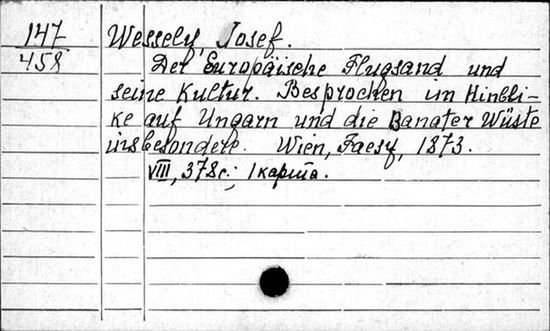 147
458
Wessely, Josef.
Der Europäische Flugsand und
seine Kultur. Besprochen im Hinbli-
ke auf Ungarn und die Banater Wüste
insbesondere. Wien, Faesy, 1873.
VIII, 378 с.; 1 карта.